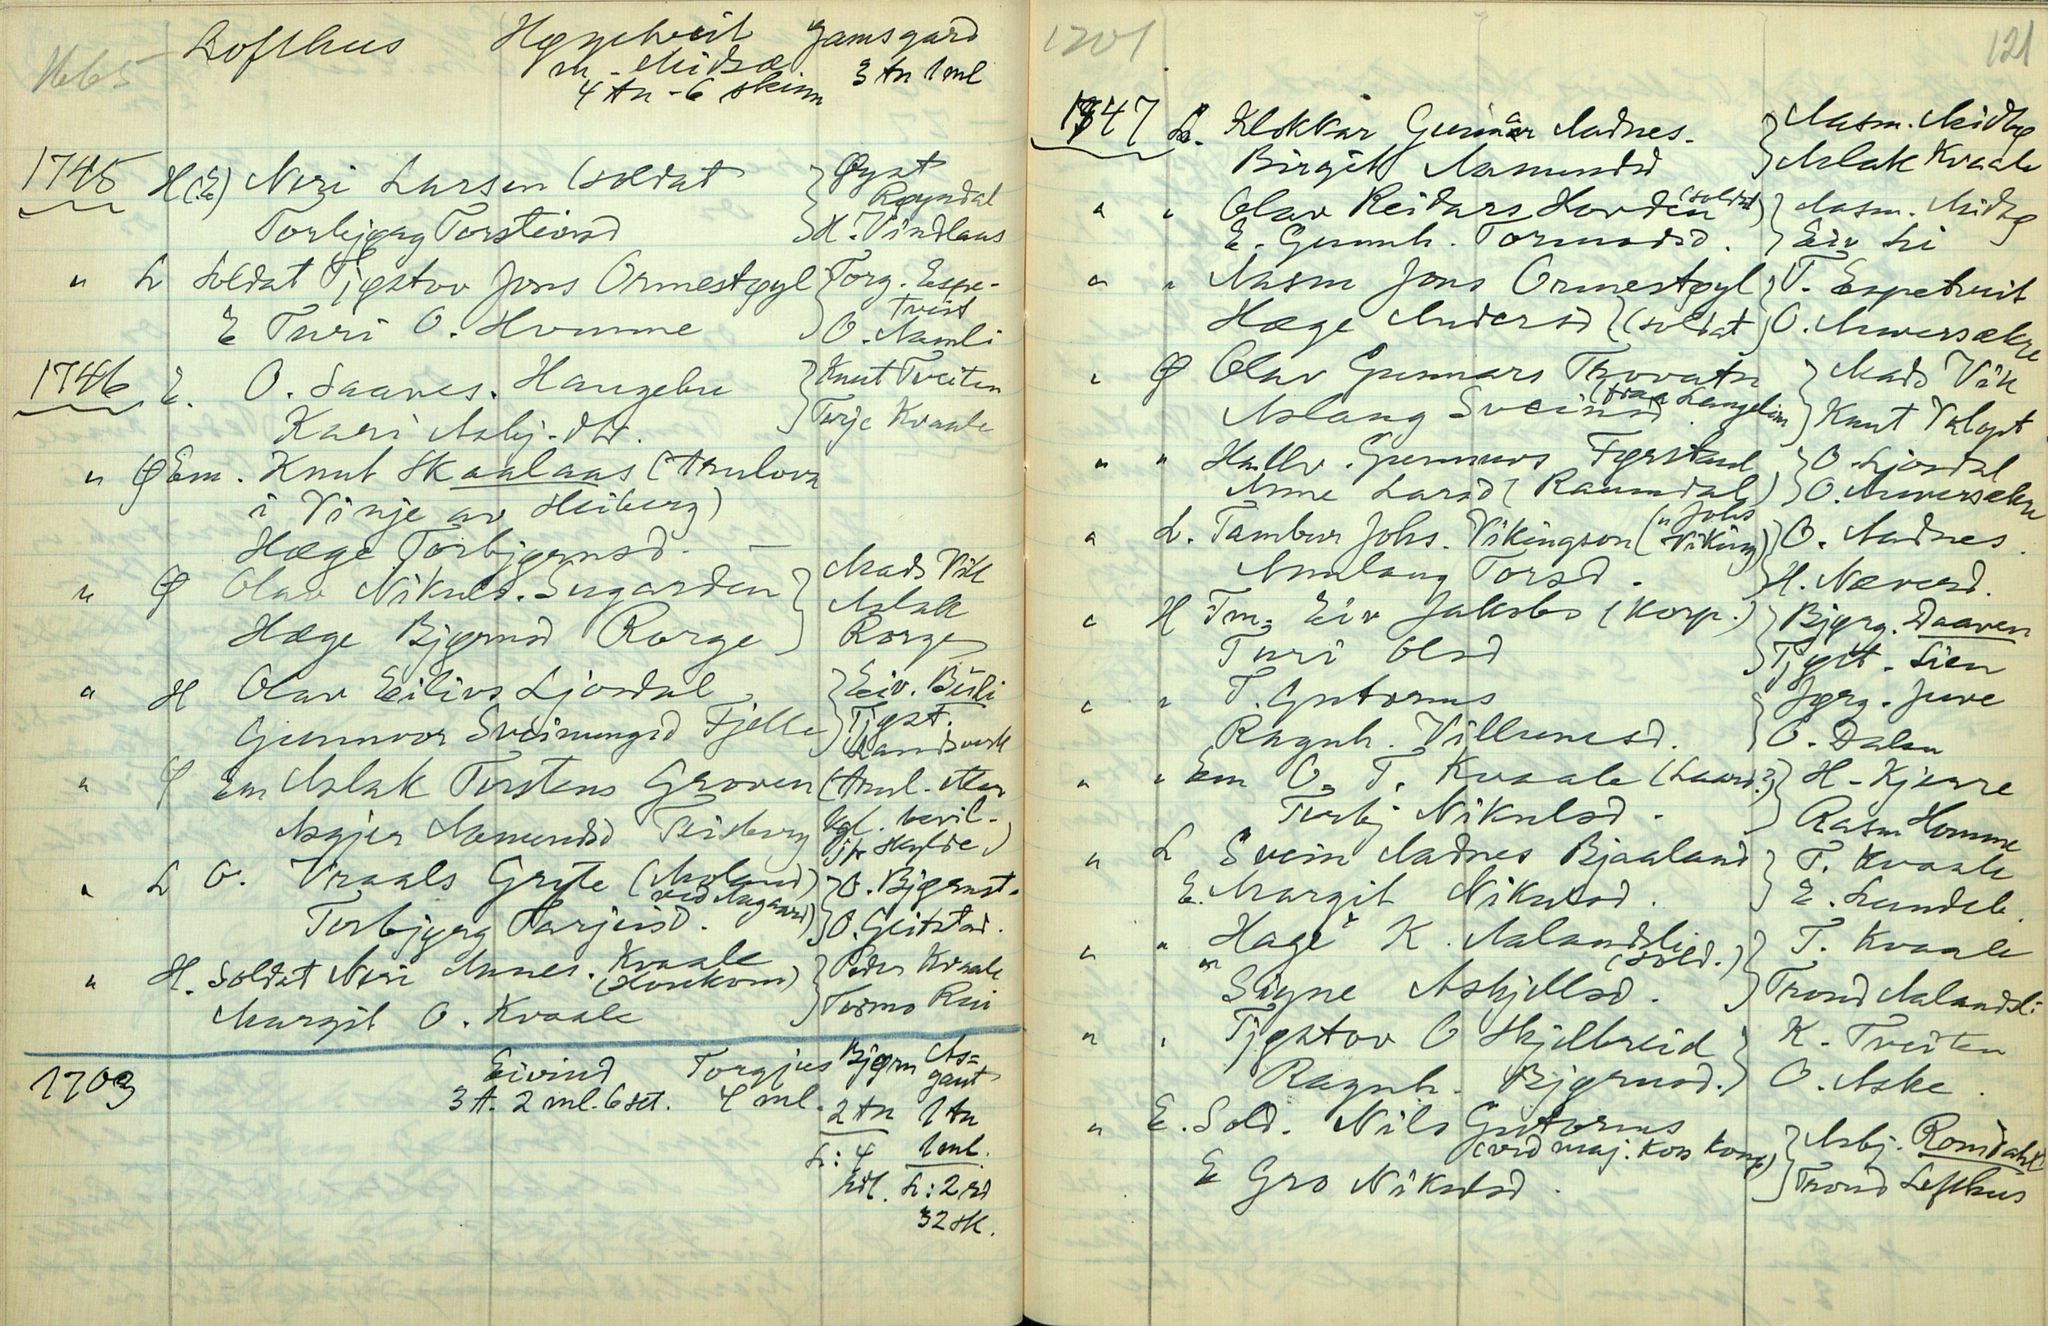 1665 Lofthus Høgetveit Jamsgård
m - Midbø 3 tn 1 ml
4 tn - 6 skinn
1745 H (E) Neri Larsen (soldat } Øyst
Røyndal
Torbjørg Torsteinsd } H. Vindlaus
" L Soldat Tjøstov Jons Ormestøyl } Torg. Espe-
tveit
E Turi O. Homme } O. Namli
1746 E. O. Saaves. Haugebu } Knut Tveiten
Kari Asbj. dtr. } Terje Kvaale
" Ø Em. Knut Skaalaas (trulova
i Vinje av Heiberg)
Hæge Torbjørnsd. —
" Ø Olav Nikuls. Sugarden } Mads Vik
Aslak
Hæge Bjørnsd Rorge } Rorge
" H Olav Eilivs Ljosdal } Eiv. Berli
Gunnvor Sveinungsd Fjelle } Tjøst.
Landsverk
" Ø Em Aslak Torsteins Groven (trul. etter
kgl. bevil-
Asgjer Aamundsd Teisberg
" L O. Vraals Gryte (Moland) } O. Bjørnst.
ved Aagaard)
Torbjørg Tarjeisd. } O. Geitstad.
" H. Soldat Neri Annes. Kvaale } Peder Kvaale
Margit O. Kvaale } Tormo Rui
1703 Eivind Torgjus Bjørn As-
gaut
3 t. 2 ml. 6 set. 4 ml. 2 tn 1 tn
L: 4 1 ml.
L: 2 rd
32 sk.
1701 121
1747 L. Klokkar Gunnar Aadnes. } Aasm. Midbø
Birgit Aamundsd } Aslak Kvaale
" " Olav Reidars Hovden (soldat) } Aasm. Midbø
E. Gunnh. Tormodsd. } Eiv Li
" " Aasm Jons Ormestøyl } T. Espetveit
Hæge Andersd } (soldat) O. Mværsækre
" Ø Olav Gunnars Trovatn } Mads Vik
(fraa Langelim
Aslaug Sveinsd } Knut Klept
" " Hallv. Gunnars Fyrstaul } O. Ljosdal
Anne Larsd (Raumdal) } O. Mværsækre
" L. Tambur Johs. Vikingson (" Johs
Viking) } O. Aadnes.
Aaslaug Torsd. } H. Næversd.
" H Em. Eiv Jakobs (korp.) } Bjørg. Daaren
Turi Olsd } Tjøst. Lien
" " T. Gutorms } Jørg. Juve
Ragnh. Villumsd. } O. Dalen
" " Em O. T. Kvaale (Laard?) } H. Kjerre
Torbj Nikulsd. } Rasm Homme
" L Svein Aadnes Bjaaland } T. Kvaale
E. Margit Nikulsd. } E. Lundeb.
" " Hage K. Aalandsli } T. Kvaale
(sold.)
Signe Askjellsd. } Trond Aalandsli
" " Tjøstov O Skjelbreid } K. Tveiten
Ragnh. Bjørnsd. } O. Aske.
" E. Sold. Nils Gutorms
(ved maj. Kors komp) } Asbj. Romdahl
E Gro Nikulsd. } Trond Lofthus